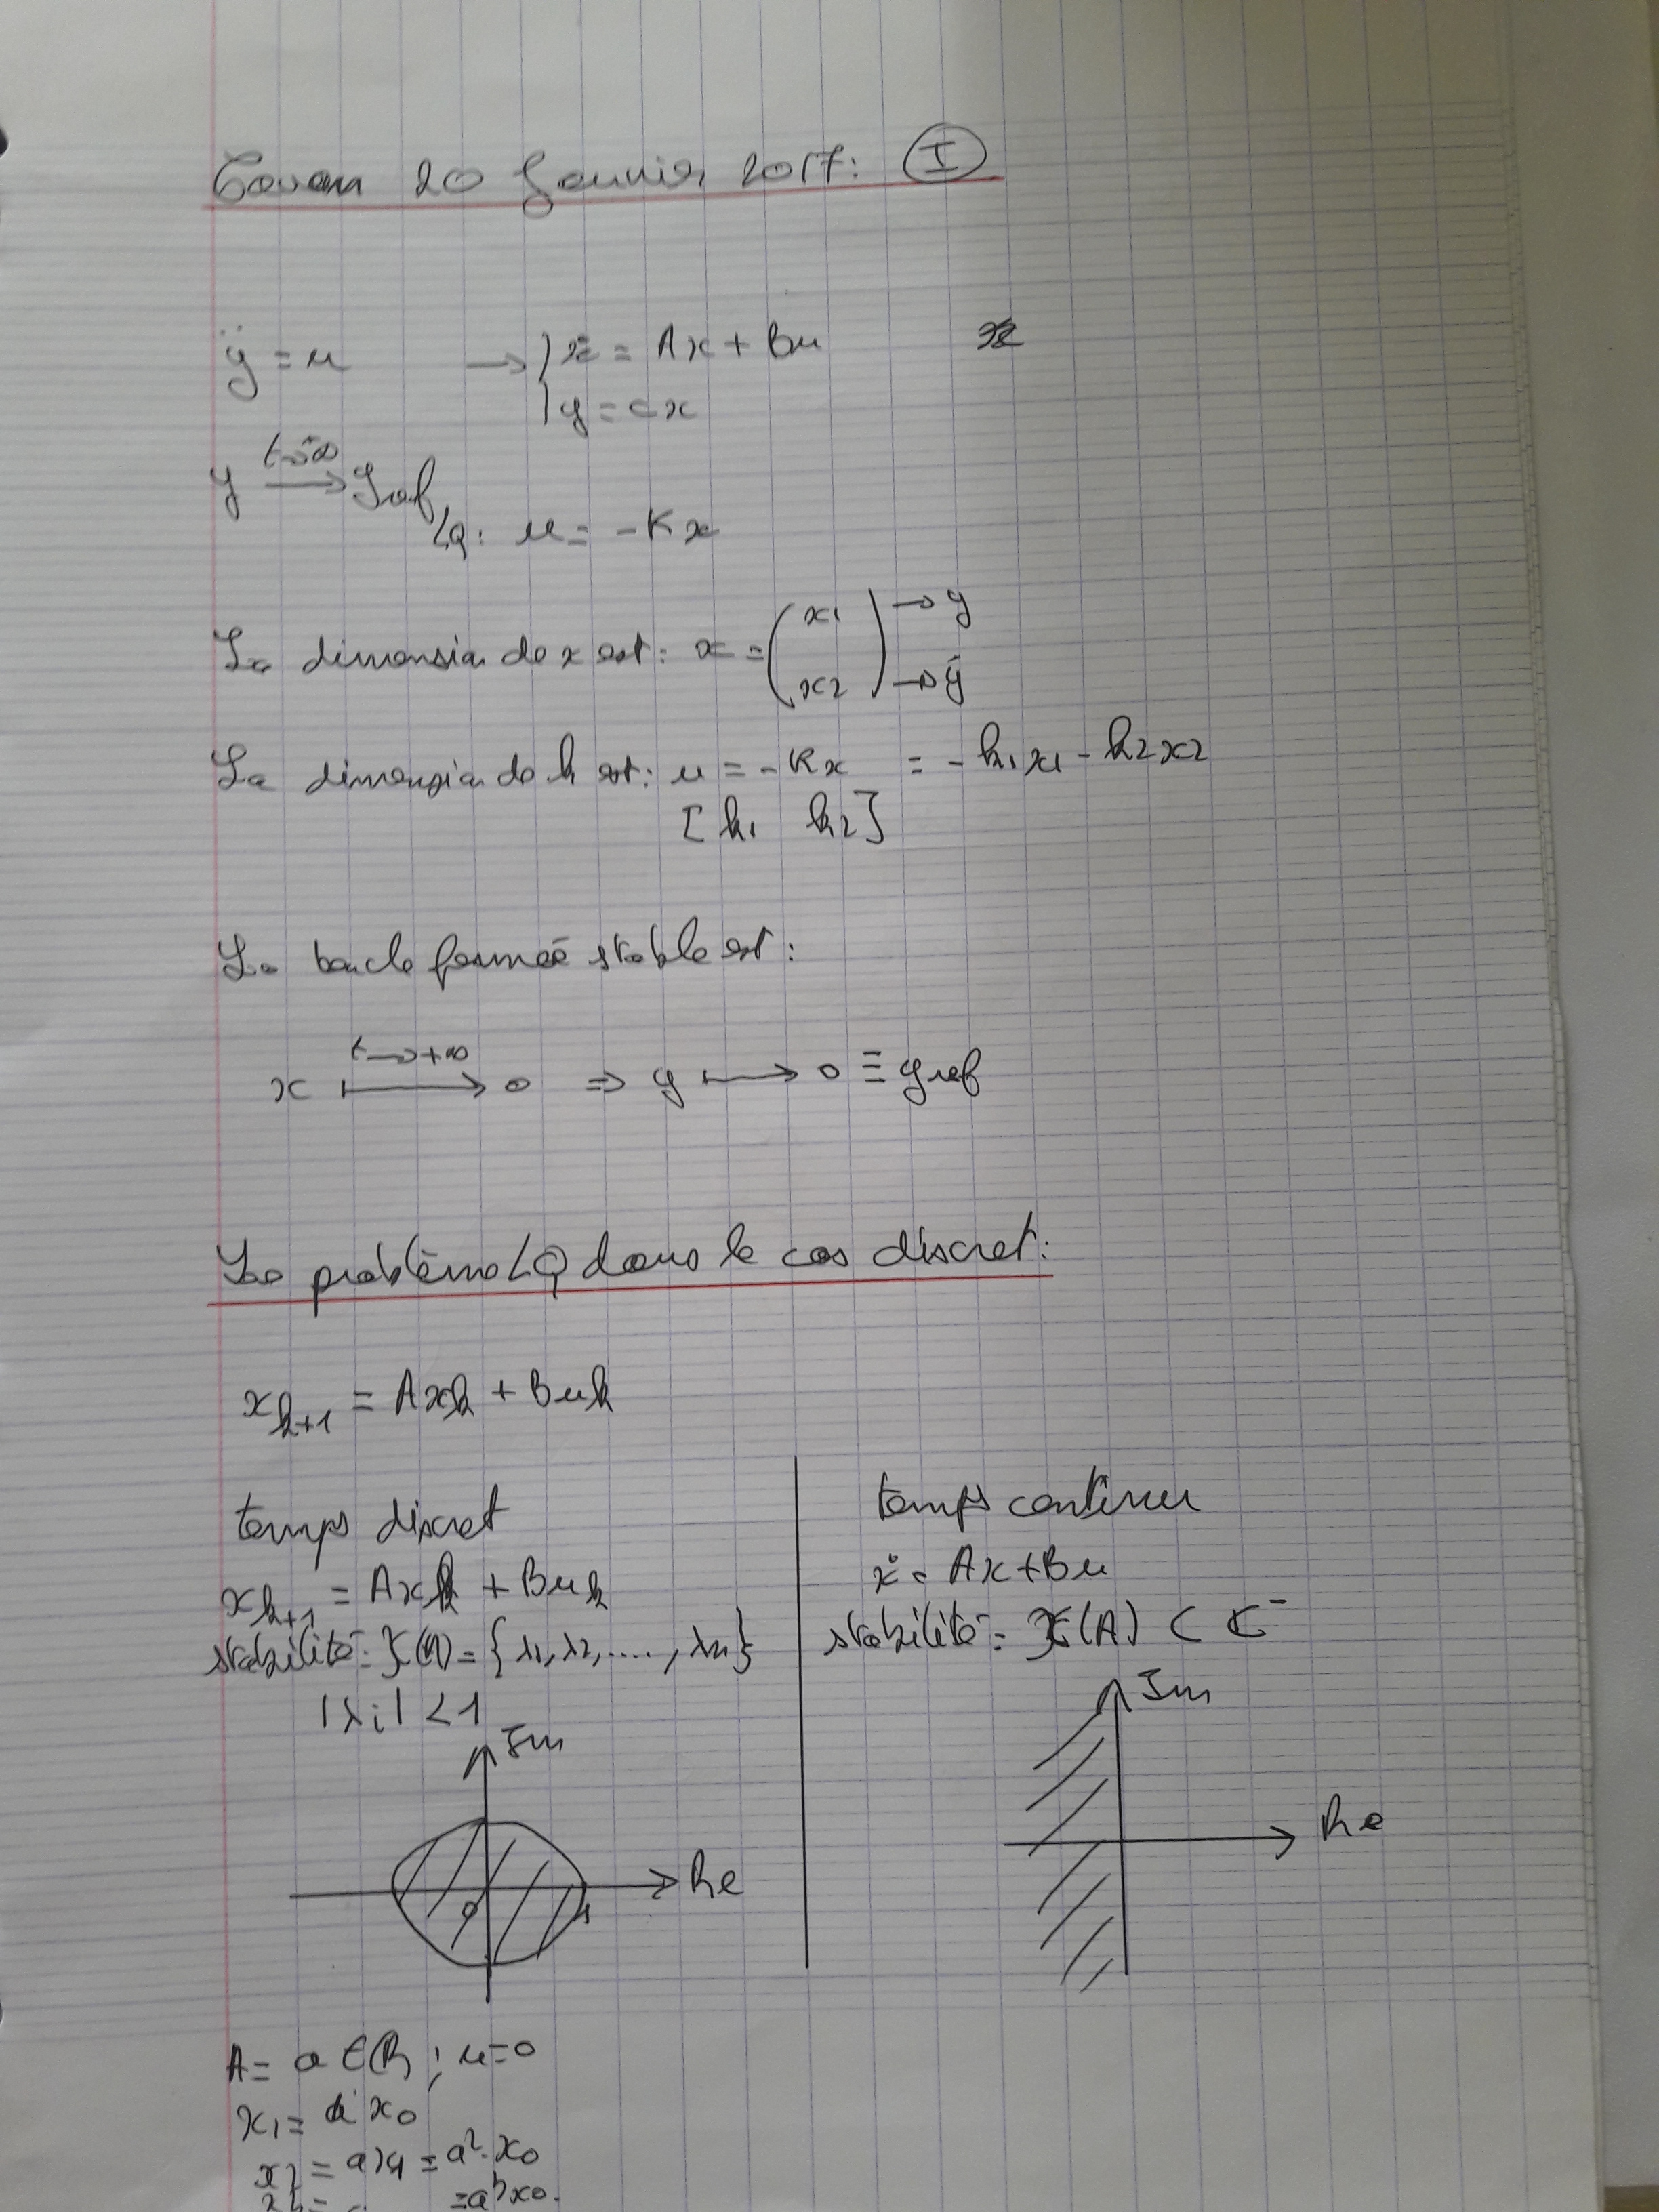 20 Janvier 2017: I
ÿ = u → { ẋ = Ax + Bu
y = cx
y t→∞ → yref
LQ: u = -Kx
La dimension de x est: x = ( x1 → y
x2 ) → ẏ
La dimension de k est: u = -Kx = -k1x1 - k2x2
[k1 k2]
La boucle fermée stable est:
x t→+∞ ⟼ 0 ⇒ y ⟼ 0 ≡ yref
Le problème LQ dans le cas discret:
xk+1 = Axk + Buk
temps discret
xk+1 = Axk + Buk
stabilité: (A) = {λ1, λ2, ...., λn}
|λi| < 1
Im
Re
0
1
temps continu
ẋ = Ax + Bu
stabilité: (A) ⊂ ℂ⁻
Im
Re
A = a ∈ ℝ ; u=0
x1 = a x0
x2 = ax1 = a². x0
= a^k x0.